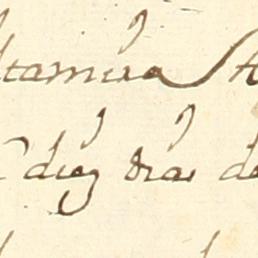 ltamira
diez dias de